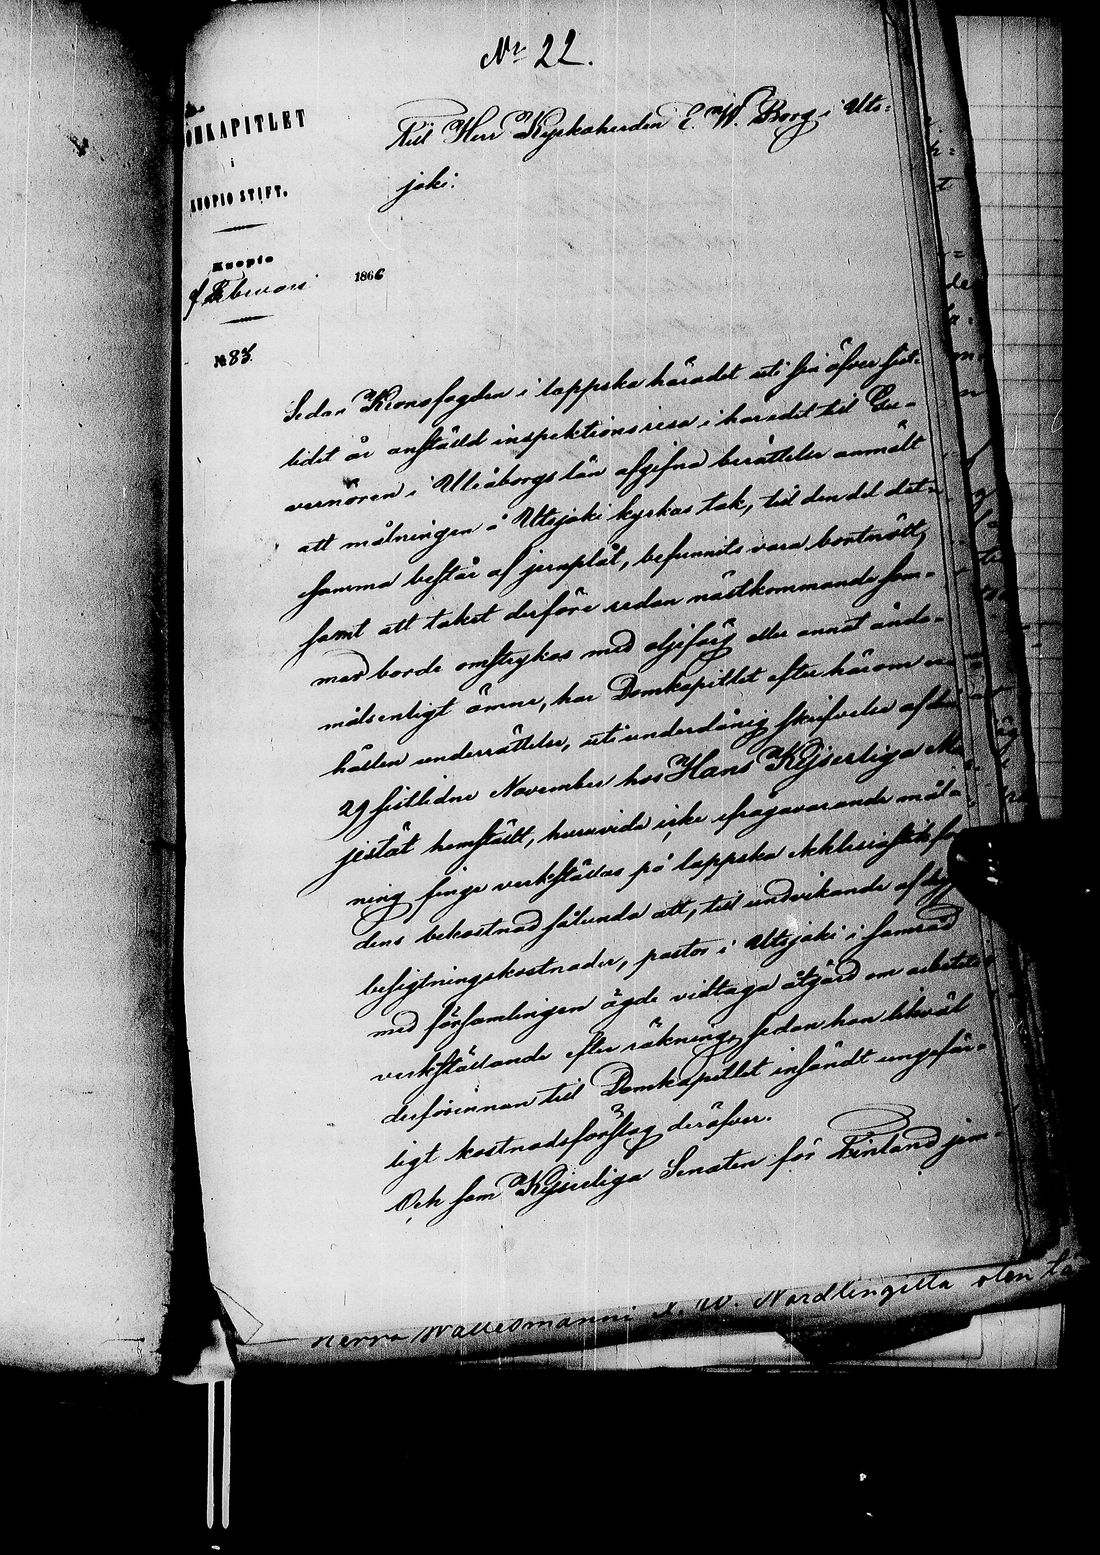 Nr 22.
DOMKAPITLET
i
KUOPIO STIFT.
Kuopio
Februari 1866
№ 83.
Till Herr Kyrkoherden E. W. Borg i Uts-
joki.
Sedan Kronofogden i lappska häradet uti sin öfver sist-
lidet år anstäld inspektionsresa i häradet till Gu-
vernören i Uleåborgs län afgifna berättelse anmält
att målningen å Utsjoki kyrkas tak, till den del det-
samma består af jernplåt, befunnits vara bortnött,
samt att taket derföre redan nästkommande som-
mar borde omstrykas med oljefärg eller annat ända-
målsenligt ämne, har Domkapitlet efter härom er-
hållen underrättelse, uti underdånig skrifvelse af den
29 sistlidne November hos Hans Kejserliga Ma-
jestät hemstält, huruvida icke ifrågavarande mål-
ning finge verkställas på lappska ekklesiastikfon-
dens bekostnad sålunda att, till undvikande af
besigtningskostnader, pastor i Utsjoki i samråd
med församlingen ägde vidtaga åtgärd om arbetets
verkställande efter räkning, sedan han likväl
derförinnan till Domkapitlet insändt ungefär-
ligt kostnadsförslag deröfver.
Och som Kejserliga Senaten för Finland jem-
Herra Wallesmanni J. W. Nordlingiltä olen